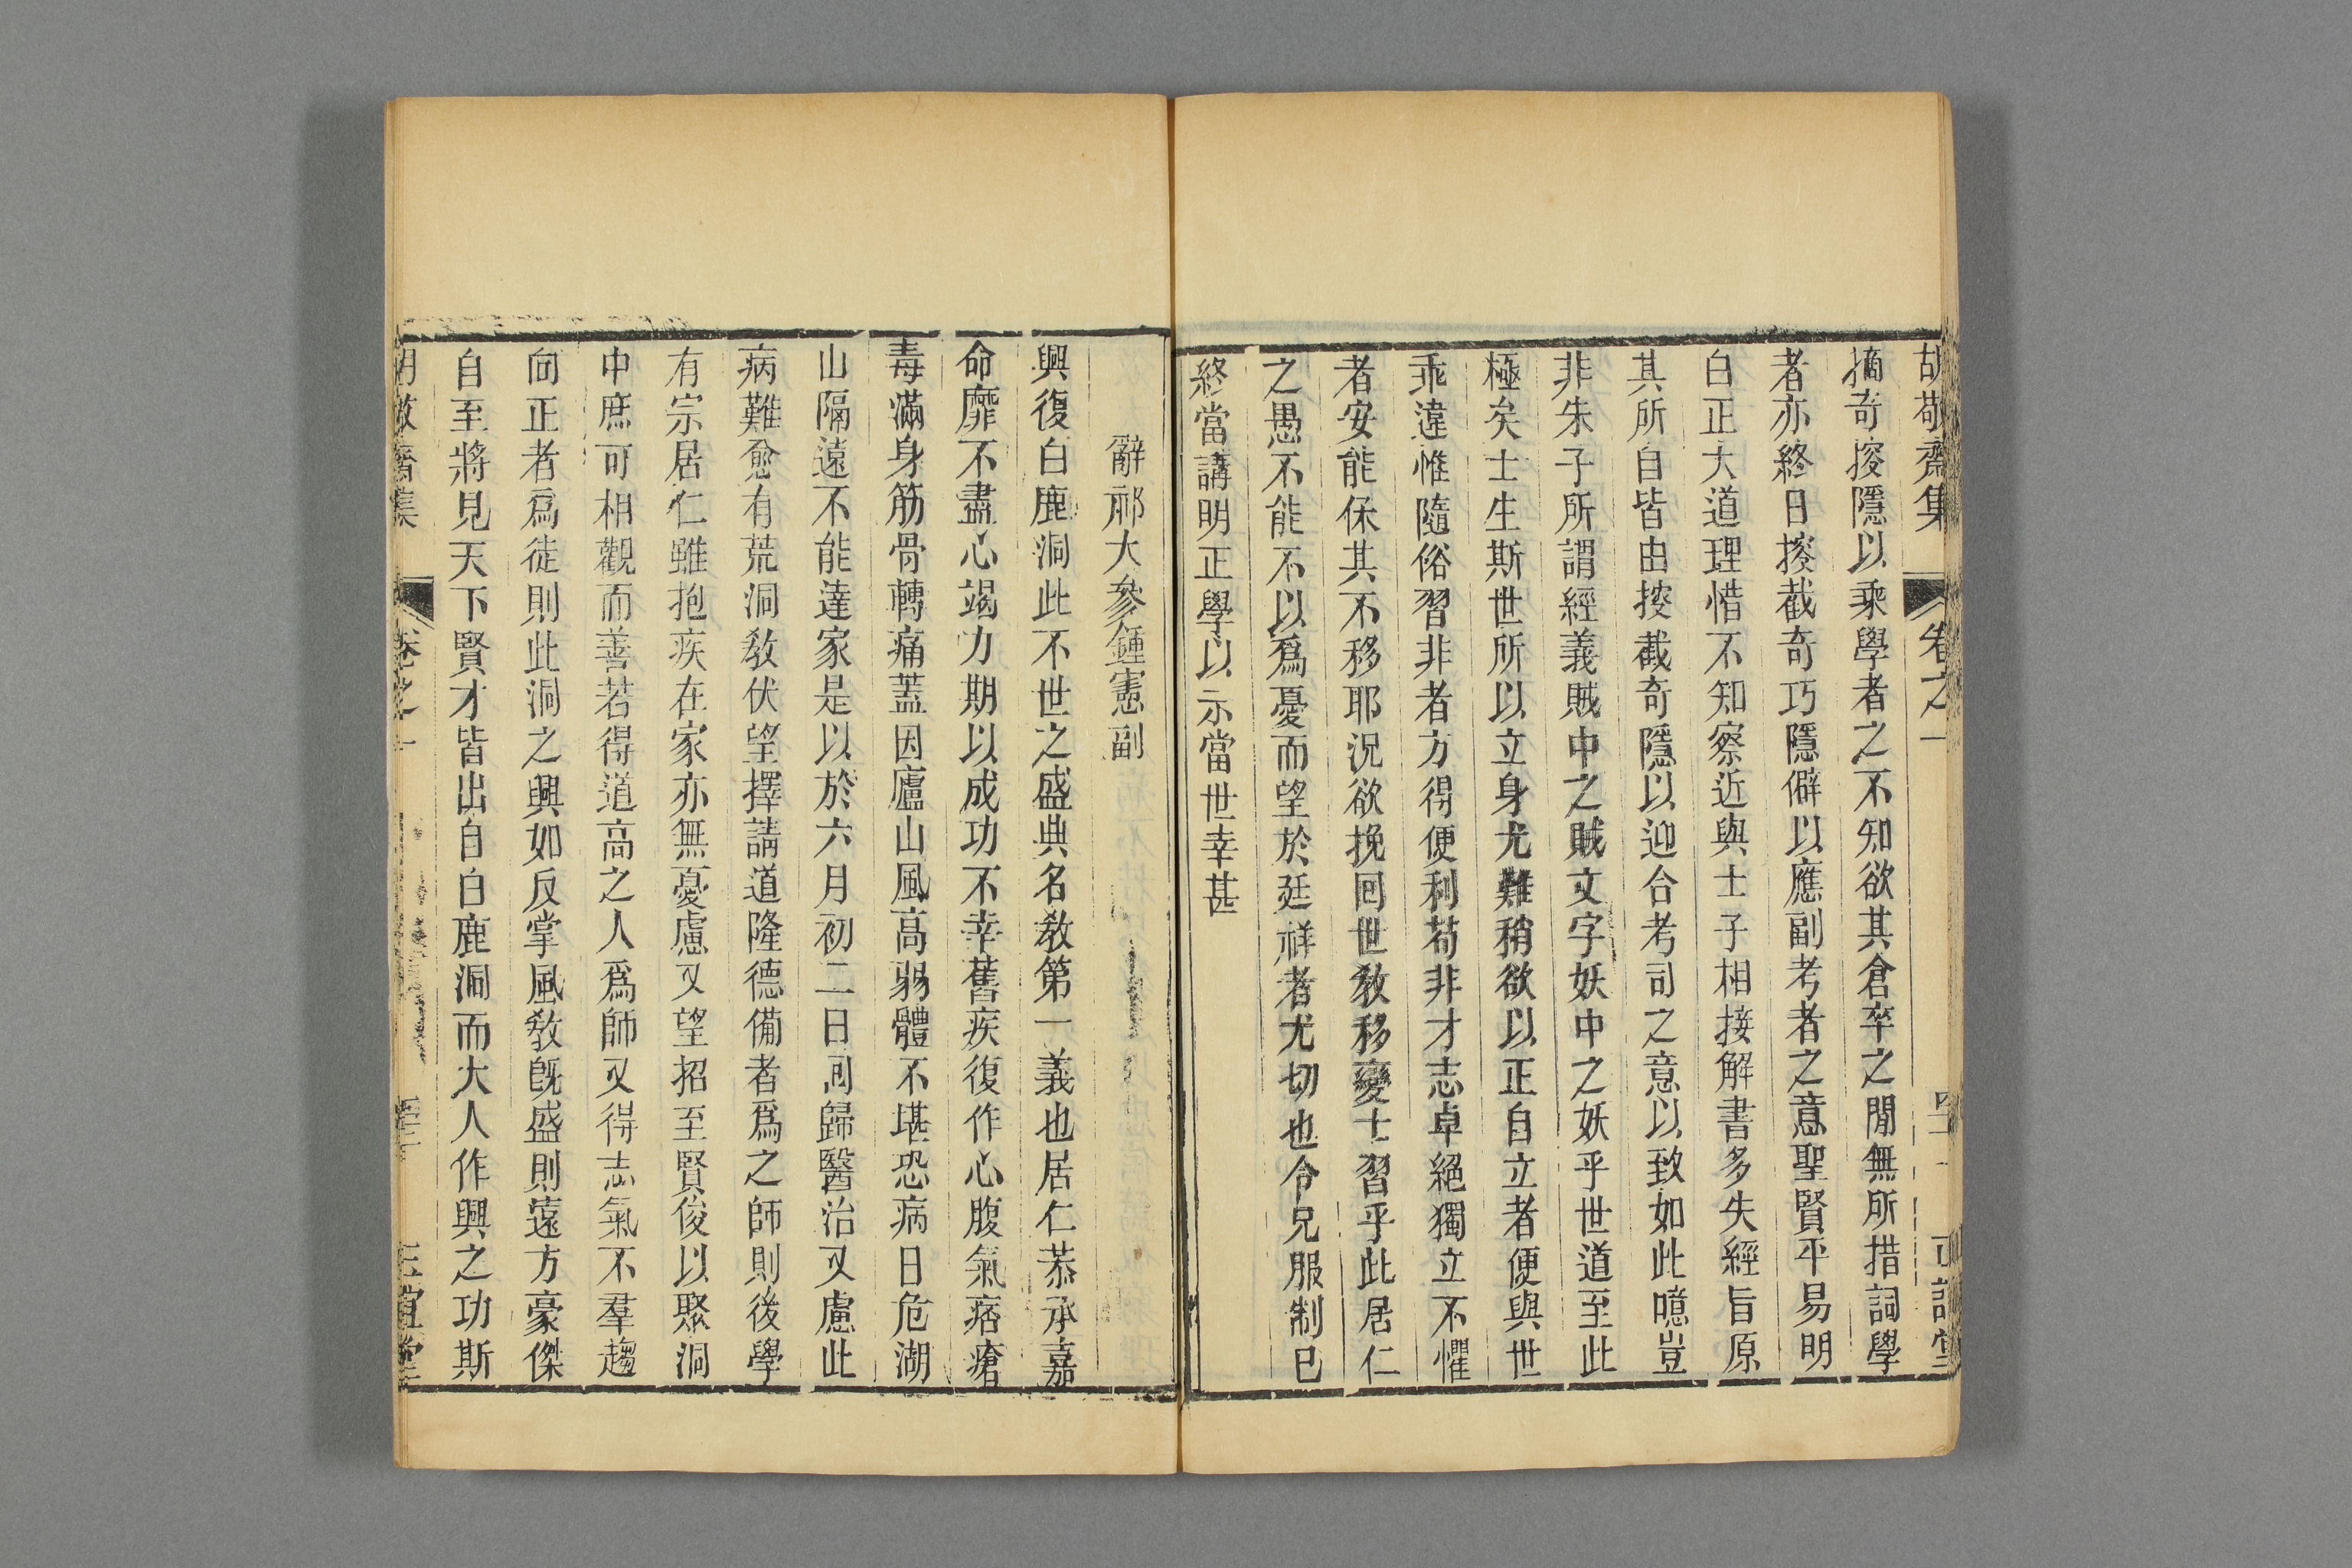 胡敬齋集
卷之一
摘奇挖隱以乘學者之不知欲其倉卒之間無所措詞學
者亦終日挖截奇巧隱僻以應副考者之意聖賢平易明
白正大道理惜不知察近與士子相接解書多失經旨原
其所自皆由挖截奇隱以迎合考司之意以致如此噫豈
非朱子所謂經義賊中之賊文字妖中之妖乎世道至此
極矣士生斯世所以立身尤難稍欲以正自立者便與世
乖違惟隨俗習非者方得便利苟非才志卓絕獨立不懼
者安能保其不移耶況欲挽回世敎移變士習乎此居仁
之愚不能不以爲憂而望於廷祥者尤切也令兄服制已
終當講明正學以示當世幸甚
辭祁大參鍾憲副
興復白鹿洞此不世之盛典名敎第一義也居仁恭承嘉
命靡不盡心竭力期以成功不幸舊疾復作心腹氣痞瘡
毒滿身筋骨轉痛蓋因廬山風高弱體不堪恐病日危湖
山隔遠不能達家是以於六月初二日囘歸醫治又慮此
病難愈有荒洞敎伏望擇請道隆德備者爲之師則後學
有宗居仁雖抱疾在家亦無憂慮又望招至賢俊以聚洞
中庶可相觀而善若得道高之人爲師又得志氣不羣趨
向正者爲徒則此洞之興如反掌風敎旣盛則遠方豪傑
自至將見天下賢才皆出自白鹿洞而大人作興之功斯
胡敬齋集
卷之一
正誼堂